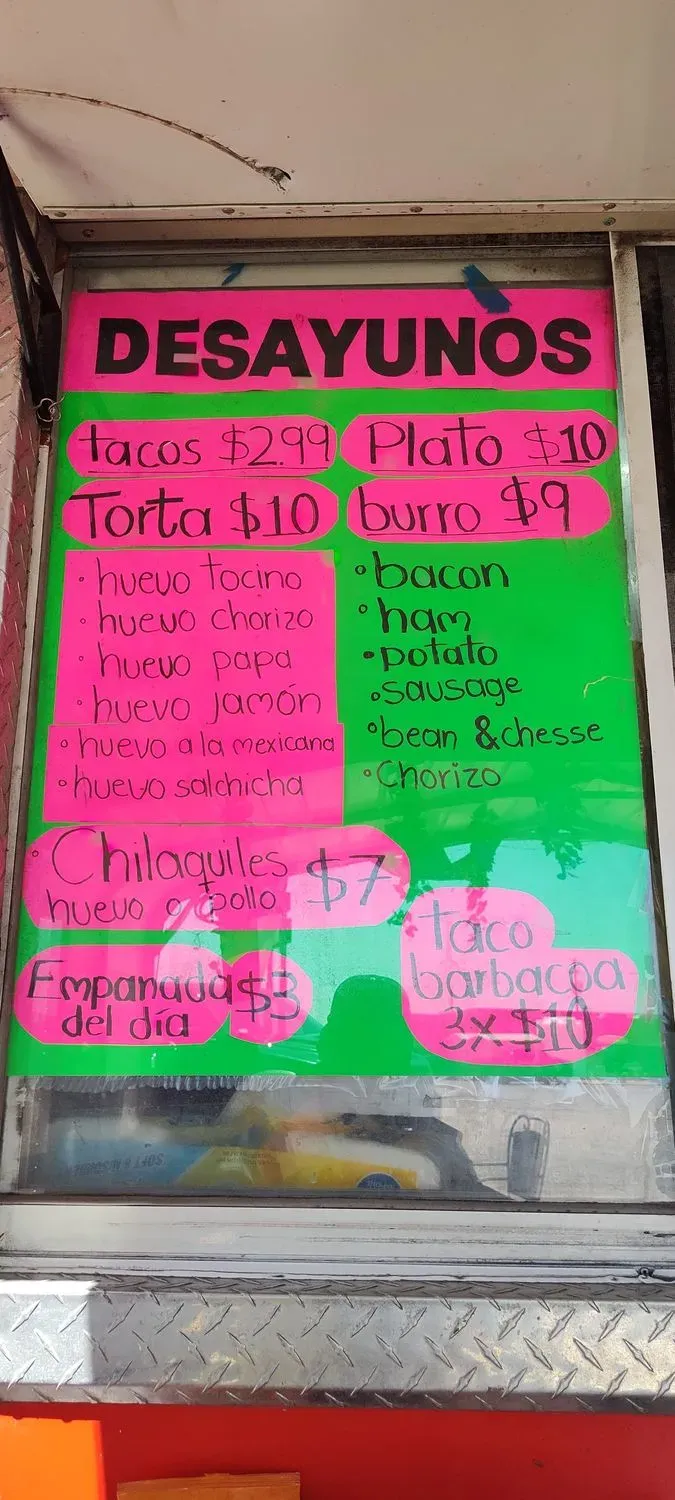 DESAYUNOS
tacos $2.99
Plato $10
Torta $10
burro $9
• huevo tocino
• huevo chorizo
• huevo papa
• huevo jamón
• huevo a la mexicana
• huevo salchicha
• bacon
• ham
• potato
• sausage
• bean & chesse
• Chorizo
• Chilaquiles $7
huevo o pollo
Empanada $3
del día
taco
barbacoa
3x $10